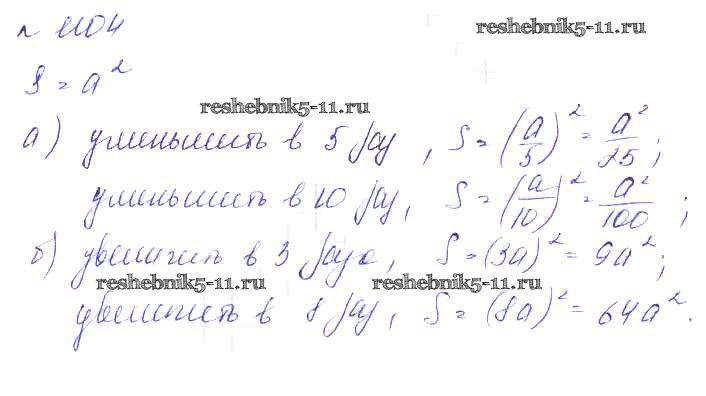 n 1104
reshebnik5-11.ru
S = a²
reshebnik5-11.ru
а) уменьшить в 5 раз, S = (a/5)² = a²/25;
уменьшить в 10 раз, S = (a/10)² = a²/100;
б) увеличить в 3 раза, S = (3a)² = 9a²;
reshebnik5-11.ru reshebnik5-11.ru
увеличить в 8 раз, S = (8a)² = 64a².